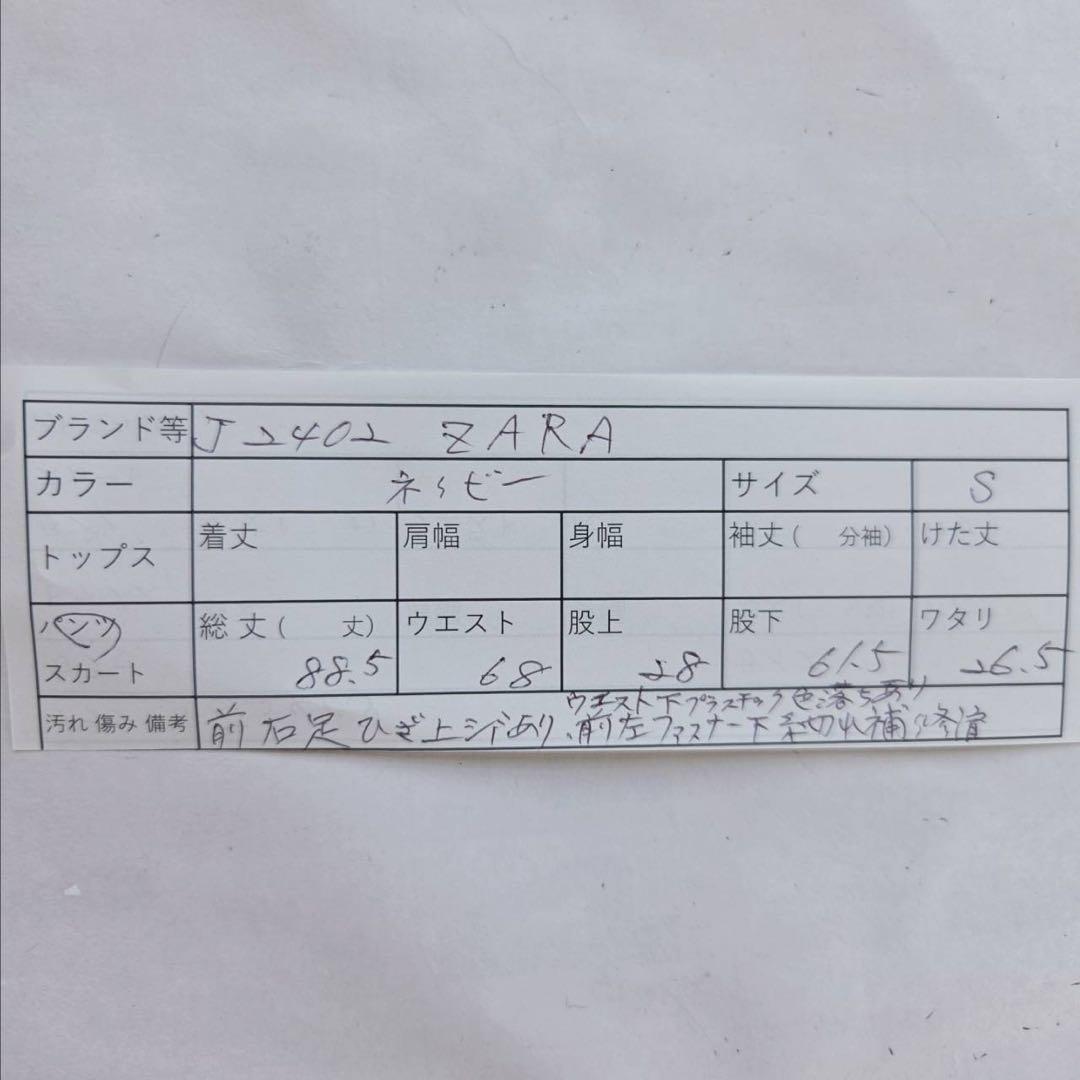 ブランド等 J2402 ZARA
カラー ネイビー サイズ S
トップス 着丈 肩幅 身幅 袖丈( 分袖) けた丈
パンツ 総丈( 丈) ウエスト 股上 股下 ワタリ
スカート 88.5 68 28 61.5 26.5
ウエスト下プラスチック色落ちあり
汚れ 傷み 備考 前右足ひざ上シミあり、前左ファスナー下糸切れ補修済